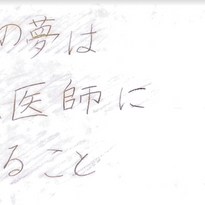 の夢は
医師に
ること